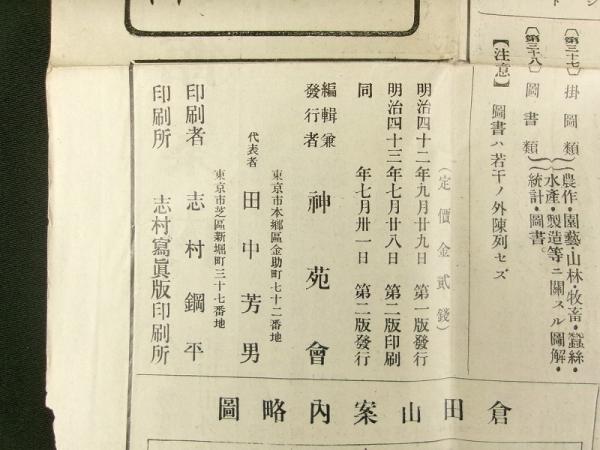 〔第三十七〕掛圖類
〔第三十八〕圖書類
農作・園藝・山林・牧畜・蠶絲・
水產・製造等ニ關スル圖解・
統計・圖書。
【注意】 圖書ハ若干ノ外陳列セズ
(定價金貳錢)
明治四十二年九月廿九日 第一版發行
明治四十三年七月廿八日 第二版印刷
同 年七月卅一日 第二版發行
編輯兼
發行者 神苑會
東京市本鄉區金助町七十二番地
代表者 田中芳男
東京市芝區新堀町三十七番地
印刷者 志村鋼平
印刷所 志村寫眞版印刷所
倉田山案內略圖